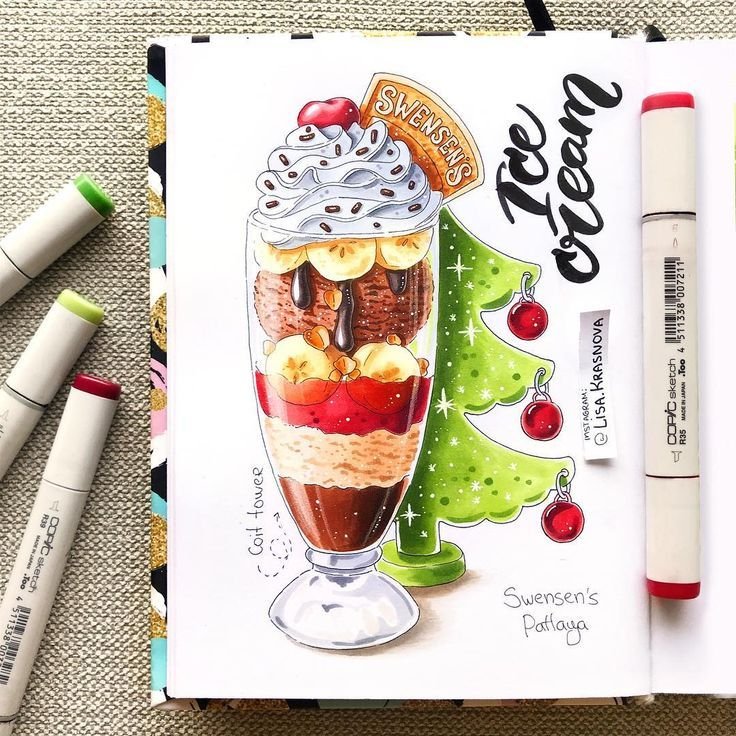 SWENSEN'S
Ice
cream
INSTAGRAM:
@LISA.KRASNOVA
Coit tower
Swensen's
Pattaya
COPIC sketch
MADE IN JAPAN .Too
R35
4 511338 007211
COPIC sketch
MADE IN JAPAN .Too
4 511338 007